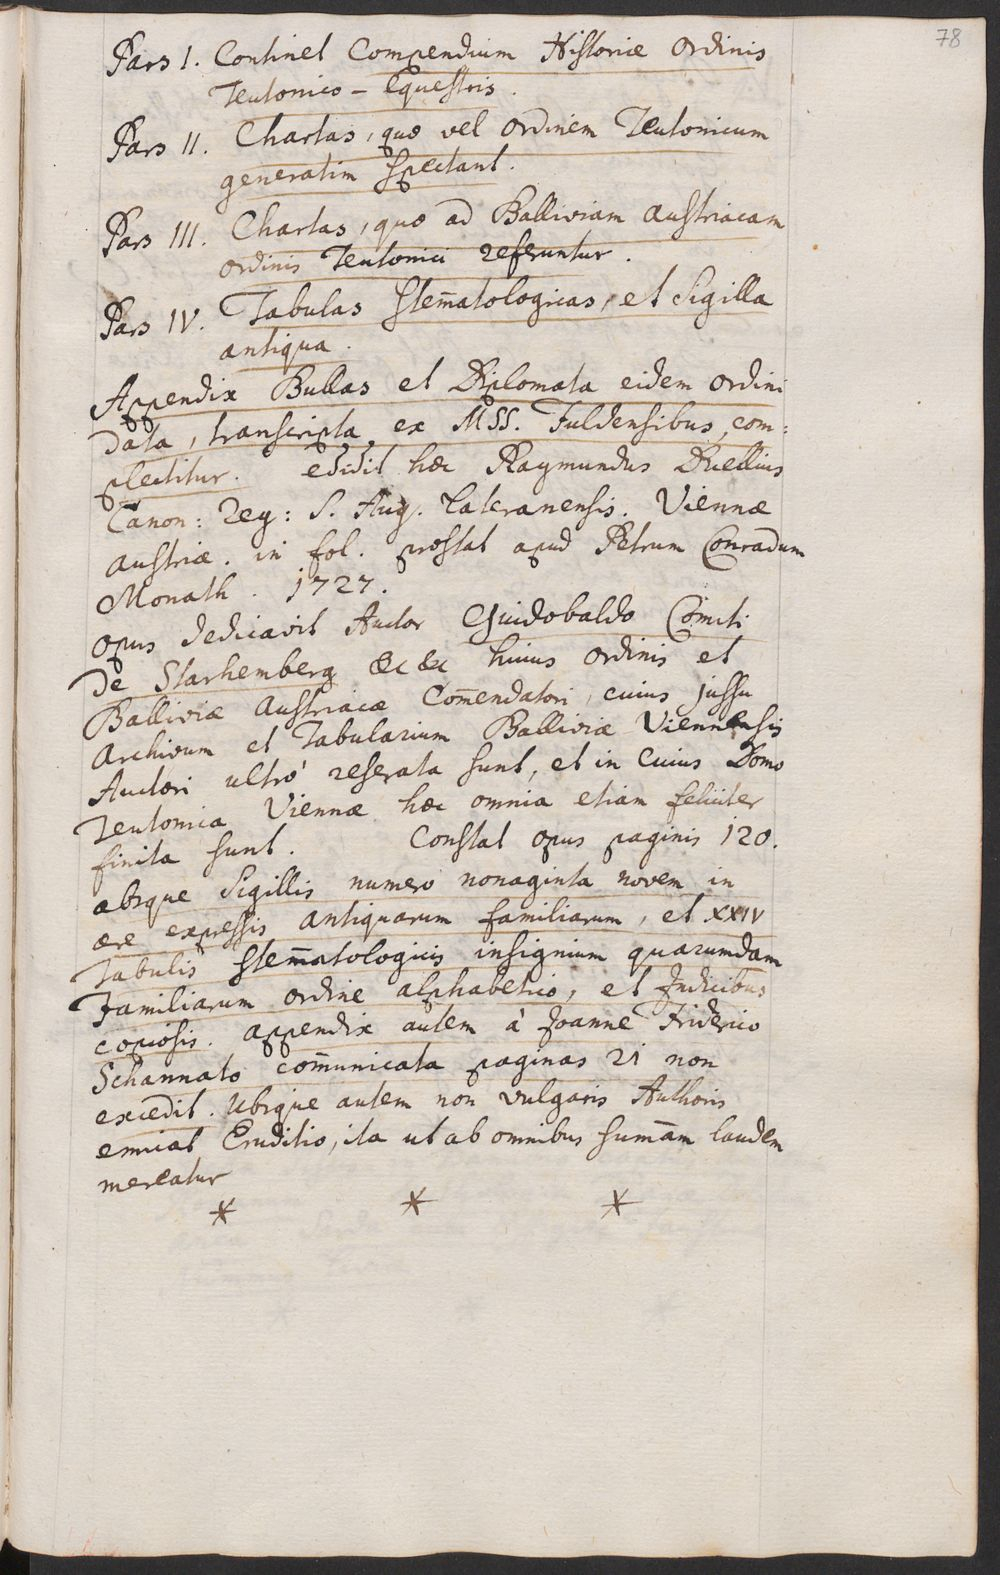 78
Pars I. Continet Compendium Historiæ Ordinis
Teutonico - Equestris.
Pars II. Chartas, quæ vel Ordinem Teutonicum
generatim spectant.
Pars III. Chartas, quæ ad Balliviam Austriacam
Ordinis Teutonici referuntur.
Pars IV. Tabulas stem̄atologicas, et Sigilla
antiqua.
Appendix Bullas et Diplomata eidem Ordini
data, transcripta ex MSS. Fuldensibus, com:
plectitur. edidit hæc Raymundus Duellius
Canon: Reg: S. Aug. Lateranensis. Viennæ
Austriæ. in fol. prostat apud Petrum Conradum
Monath. 1727.
opus dedicavit Auctor Guidobaldo Comiti
de Starhemberg &c &c huius Ordinis et
Balliviæ Austriacæ Com̄endatori, cuius jussu
Archivum et Tabularium Balliviæ Viennensis
Auctori ultrò reserata sunt, et in cuius Domo
Teutonica Viennæ hæc omnia etiam feliciter
finita sunt. Constat opus paginis 120.
absque Sigillis numero nonaginta novem in
ære expressis antiquarum familiarum, et XXIV
Tabulis stem̄atologicis insignium quarumdam
Familiarum ordine alphabetico, et Indicibus
copiosis. appendix autem à Joanne Friderico
Schannato com̄unicata paginas 21 non
excedit. Ubique autem non vulgaris Authoris
emicat Eruditio, ita ut ab omnibus sum̄am laudem
mereatur
* * *